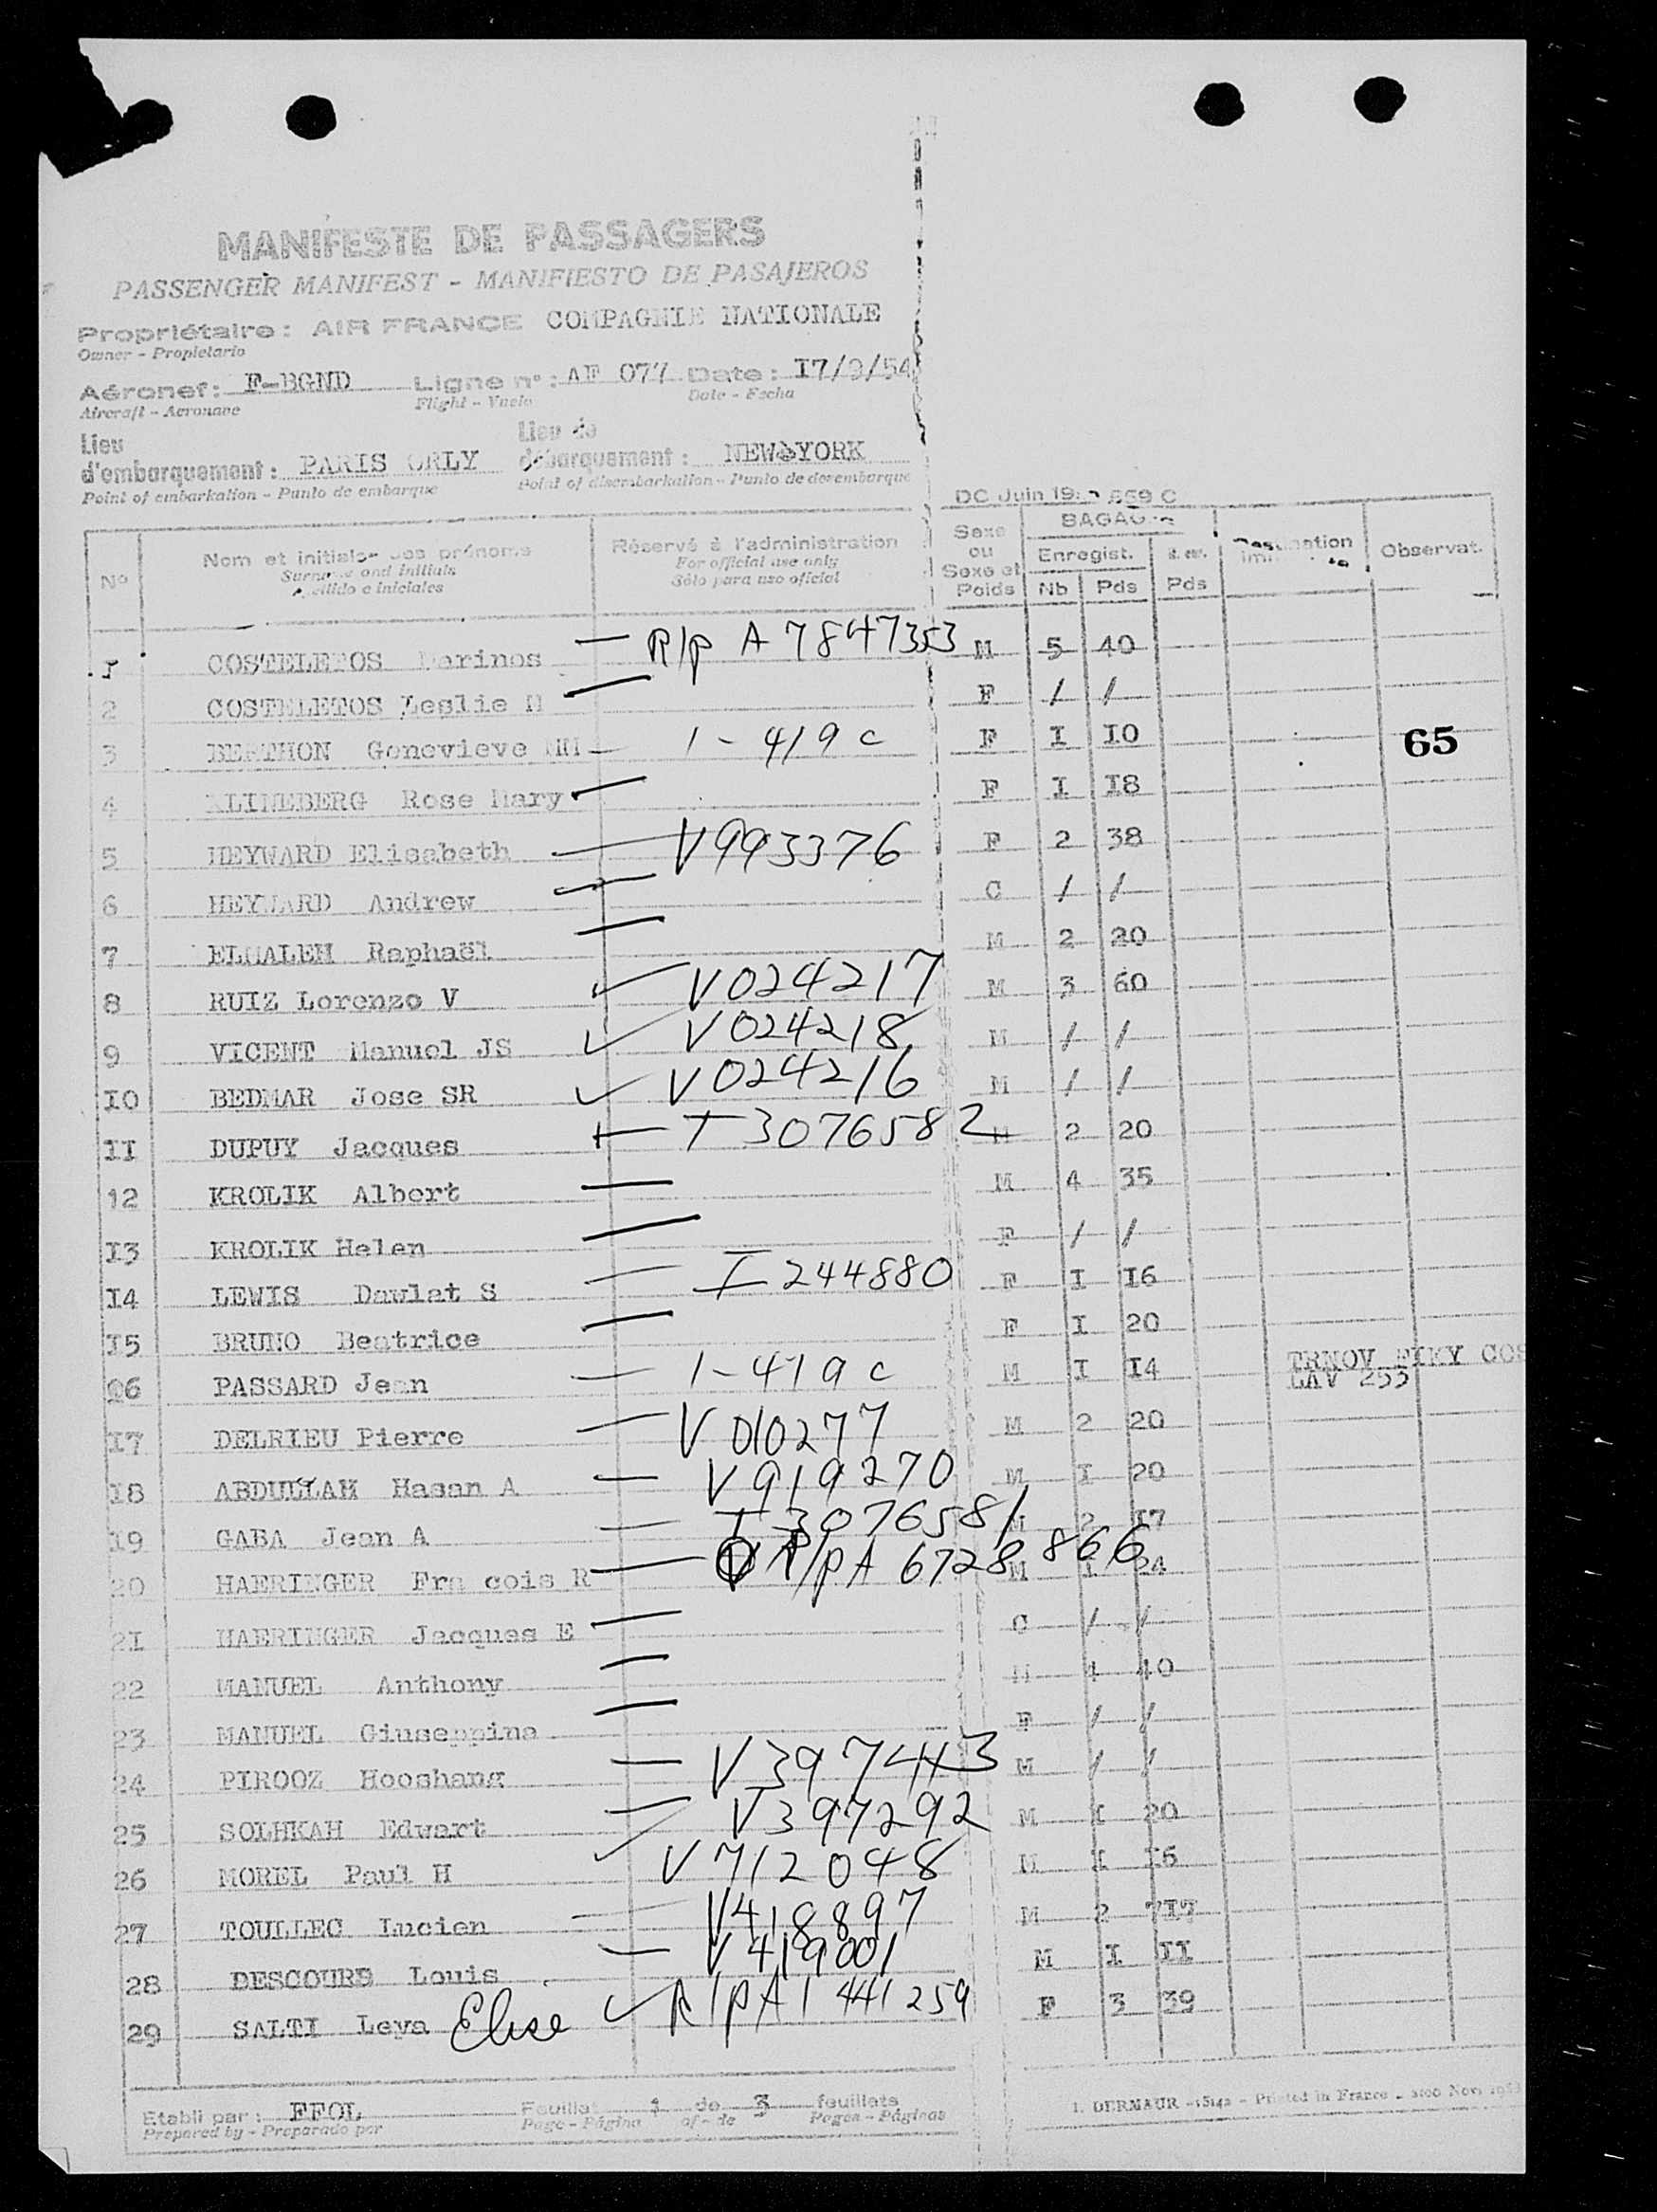 MANIFESTE DE PASSAGERS
PASSENGER MANIFEST - MANIFIESTO DE PASAJEROS
Propriétaire : AIR FRANCE COMPAGNIE NATIONALE
Owner - Propietario
Aéronef : F-BGND Ligne n° : AF 077 Date : I7/9/54
Aircraft - Aeronave Flight - Vuelo Date - Fecha
Lieu d'embarquement : PARIS ORLY Lieu de débarquement : NEW YORK
Point of embarkation - Punto de embarque Point of disembarkation - Punto de desembarque
DC Juin 559 C
N° Nom et initiales des prénoms Réservé à l'administration Sexe ou Sexe et Poids BAGAG Enregist. Nb Pds Pds Observat.
Surname and initials For official use only
e iniciales Sólo para uso oficial
I COSTELETOS Marinos — R/P A 7847353 M 5 40
2 COSTELETOS Leslie H — F / /
3 BERTHON Genevieve MM — 1-419 c F I IO 65
4 KLINEBERG Rose Mary — F I I8
5 HEYWARD Elisabeth — V993376 F 2 38
6 HEYWARD Andrew — C / /
7 ELMALEH Raphaël — M 2 20
8 RUIZ Lorenzo V ✓ V024217 M 3 60
9 VICENT Manuel JS ✓ V024218 M / /
IO BEDMAR Jose SR ✓ V024216 M / /
II DUPUY Jacques — T 3076582 2 20
I2 KROLIK Albert — M 4 35
I3 KROLIK Helen — F / /
I4 LEWIS Dawlat S — I 244880 F I I6
I5 BRUNO Beatrice — F I 20
I6 PASSARD Jean — 1-419 c M I I4 LAV 253
I7 DELRIEU Pierre — V 010277 M 2 20
I8 ABDULLAH Hasan A — V 919270 M I 20
I9 GABA Jean A — T 3076581 M 2 I7
20 HAERINGER Fra cois R — R/P A 6728 866 M I 24
2I HAERINGER Jacques E — C / /
22 MANUEL Anthony — M 4 40
23 MANUEL Giuseppina — F / /
24 PIROOZ Hooshang — V 397443 M / /
25 SOLHKAH Edwart — V397292 M I 20
26 MOREL Paul H ✓ V 712048 M I I6
27 TOULLEC Lucien — V418897 M 2
28 DESCOURS Louis — V 419001 M I II
29 SALTI Leya Elise ✓ R/P A 1 441 259 F 3 39
Etabli par : FFOL Feuillet 1 de 3 feuillets
Prepared by - Preparado por Page - Página of - de Pages - Páginas
I. DERMAUR - Printed in France